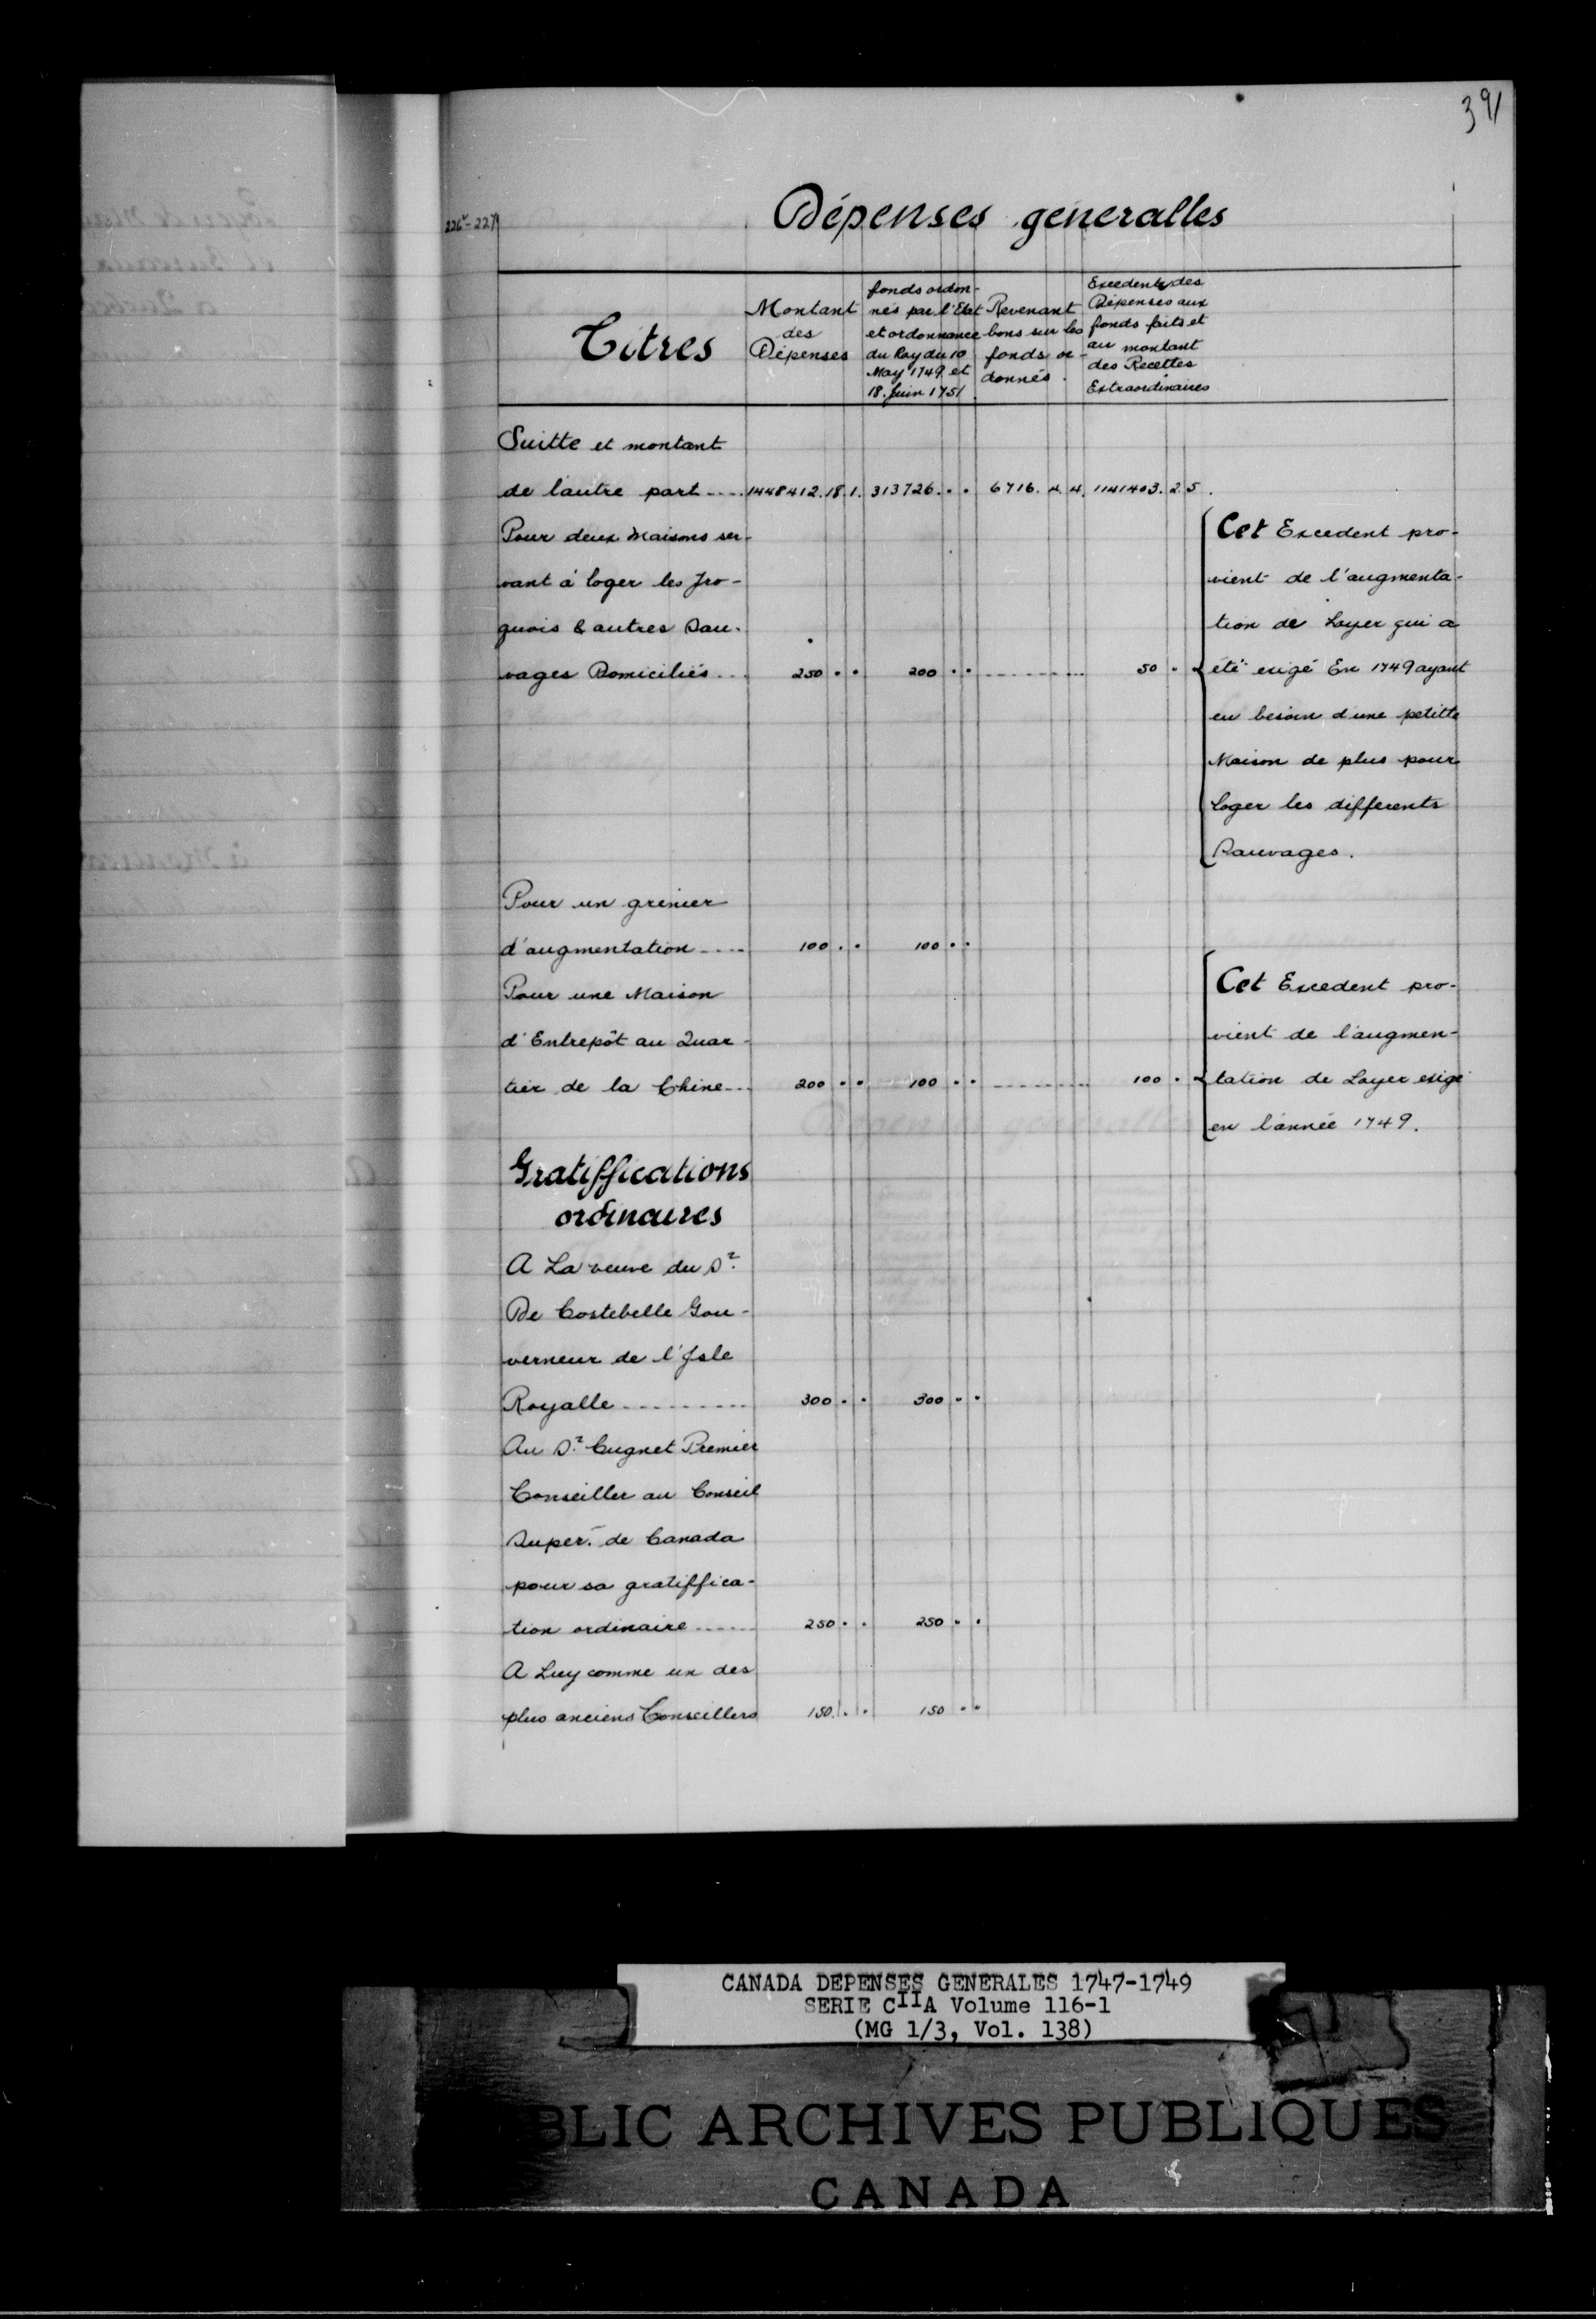 391
226v-227
Dépenses generalles
Titres
Montant
des
Dépenses
fonds ordon-
nés par l'Etat
et ordonnance
du Roy du 10
May 1749. et
18. Juin 1751
Revenant
bons sur les
fonds or-
donnés.
Excedents des
Dépenses aux
fonds faits et
au montant
des Recettes
Extraordinaires
Suitte et montant
de l'autre part.... 1448412. 18. 1. 313726. . . 6716. 4. 4. 1141403. 2. 5.
Pour deux Maisons ser-
vant à loger les Iro-
quois & autres Sau-
vages Domiciliés... 250 . . 200 . . .......... 50 . .
Cet Excedent pro-
vient de l'augmenta-
tion de Loyer qui a
été exigé En 1749 ayant
eu besoin d'une petitte
Maison de plus pour
loger les differents
Sauvages.
Pour un grenier
d'augmentation..... 100 . . 100 . .
Pour une Maison
d'Entrepôt au Quar-
tier de la Chine... 200 . . 100 . . .......... 100 . .
Cet Excedent pro-
vient de l'augmen-
tation de Loyer exigé
en l'année 1749.
Gratiffications
ordinaires
A La veuve du Sr.
De Costebelle Gou-
verneur de l'Isle
Royalle.......... 300 . . 300 . .
Au Sr. Cugnet Premier
Conseiller au Conseil
Super. de Canada
pour sa gratiffica-
tion ordinaire...... 250 . . 250 . .
A Luy comme un des
plus anciens Conseillers 150. . . 150 . .
CANADA DEPENSES GENERALES 1747-1749
SERIE CIIA Volume 116-1
(MG 1/3, Vol. 138)
BLIC ARCHIVES PUBLIQUES
CANADA